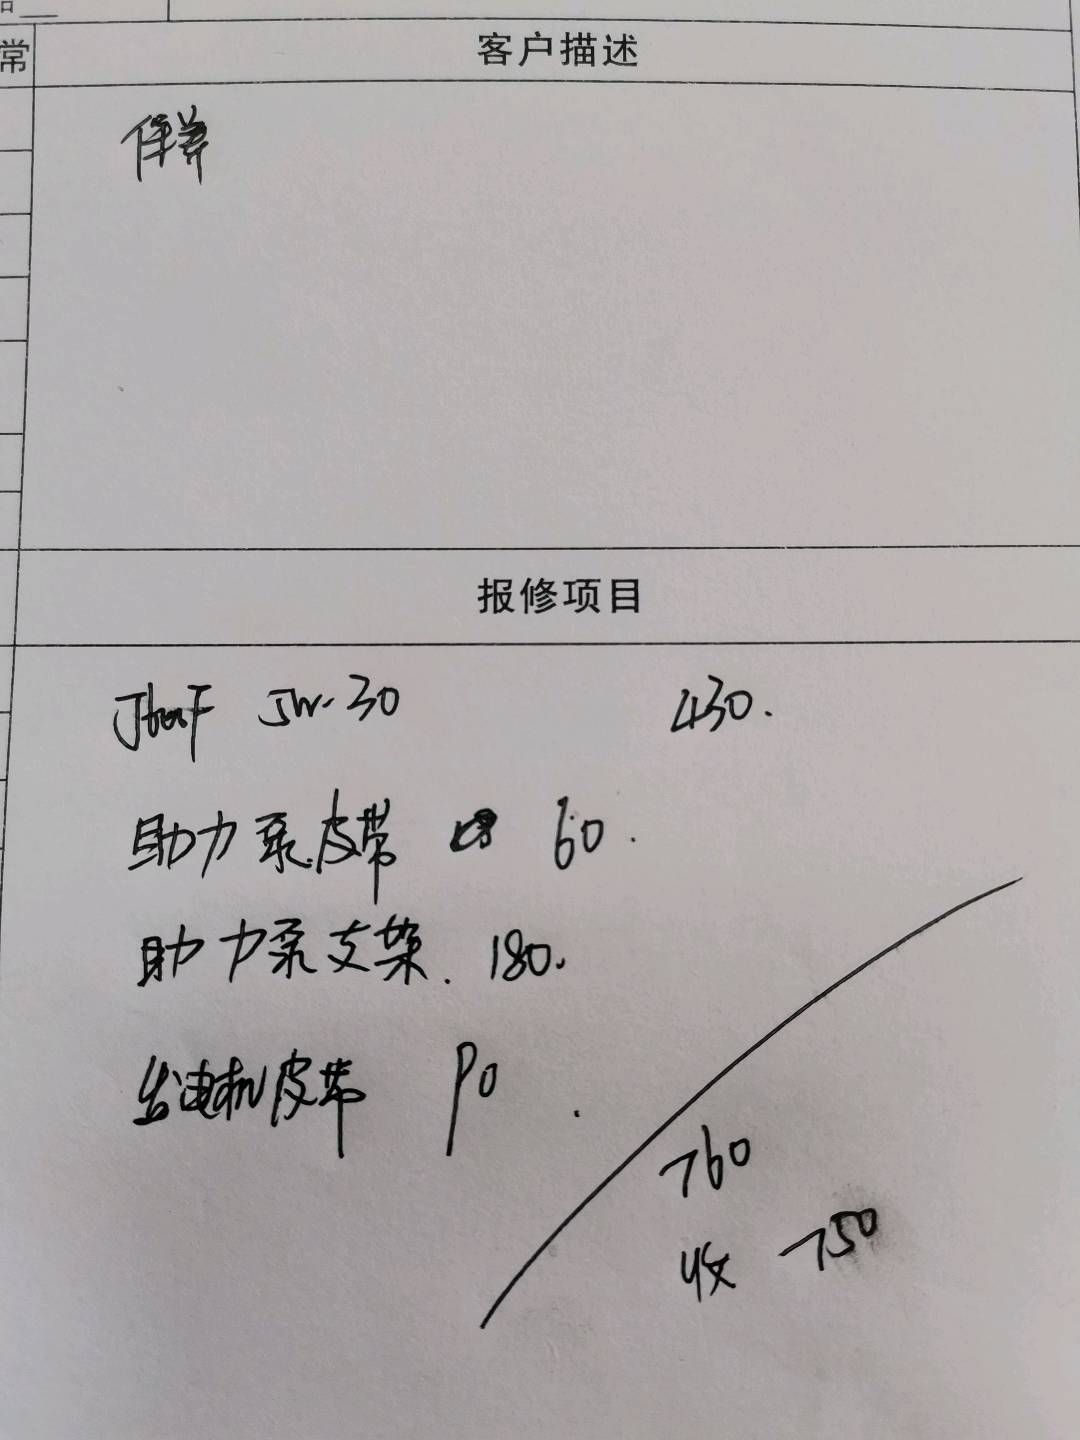 常
客户描述
保养
报修项目
5W-30 430.
助力泵皮带 60.
助力泵支架. 180.
发电机皮带 90
760
收 750